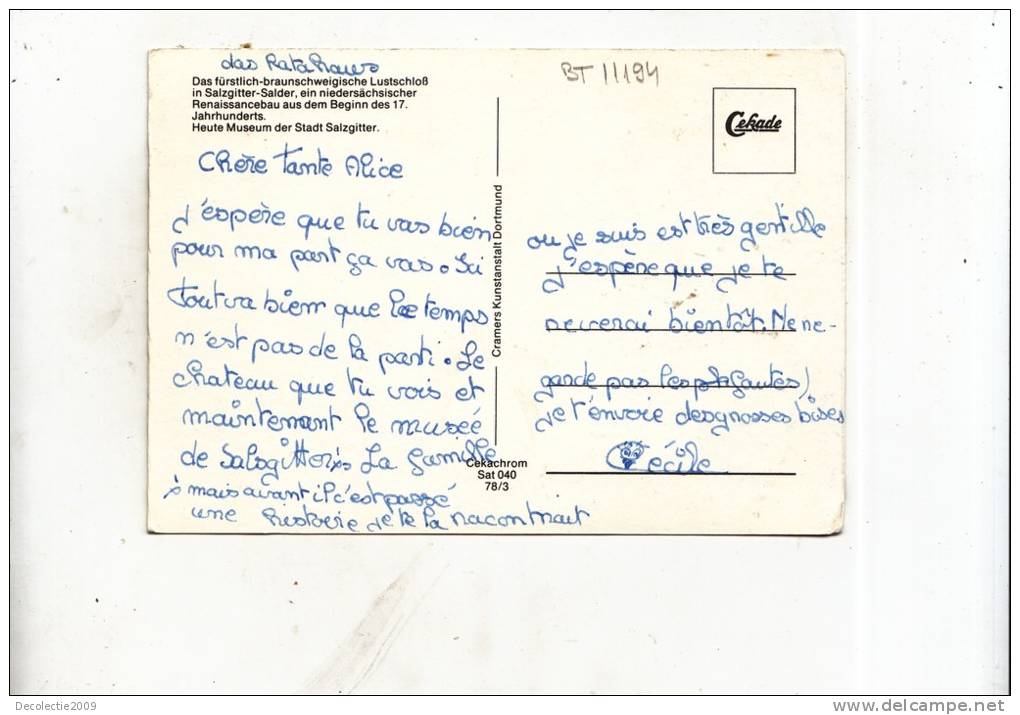 das Ratahaus
Das fürstlich-braunschweigische Lustschloß
in Salzgitter-Salder, ein niedersächsischer
Renaissancebau aus dem Beginn des 17.
Jahrhunderts.
Heute Museum der Stadt Salzgitter.
Chère tante Alice
j'espère que tu vas bien
pour ma part ça vas. Ici
tout va bien que le temps
n'est pas de la parti. Le
chateau que tu vois et
maintenant le musée
de Salsgitter x. La famille
x mais avant il c'est passé
une histoire je te la racontrait
Cramers Kunstanstalt Dortmund
Cekachrom
Sat 040
78/3
BT 11194
Cekade
ou je suis est très gentille
j'espère que je te
reverai bientôt. Ne re-
garde pas les fautes)
je t'envoie des grosses bises
Cécile
Decolectie2009
www.delcampe.net